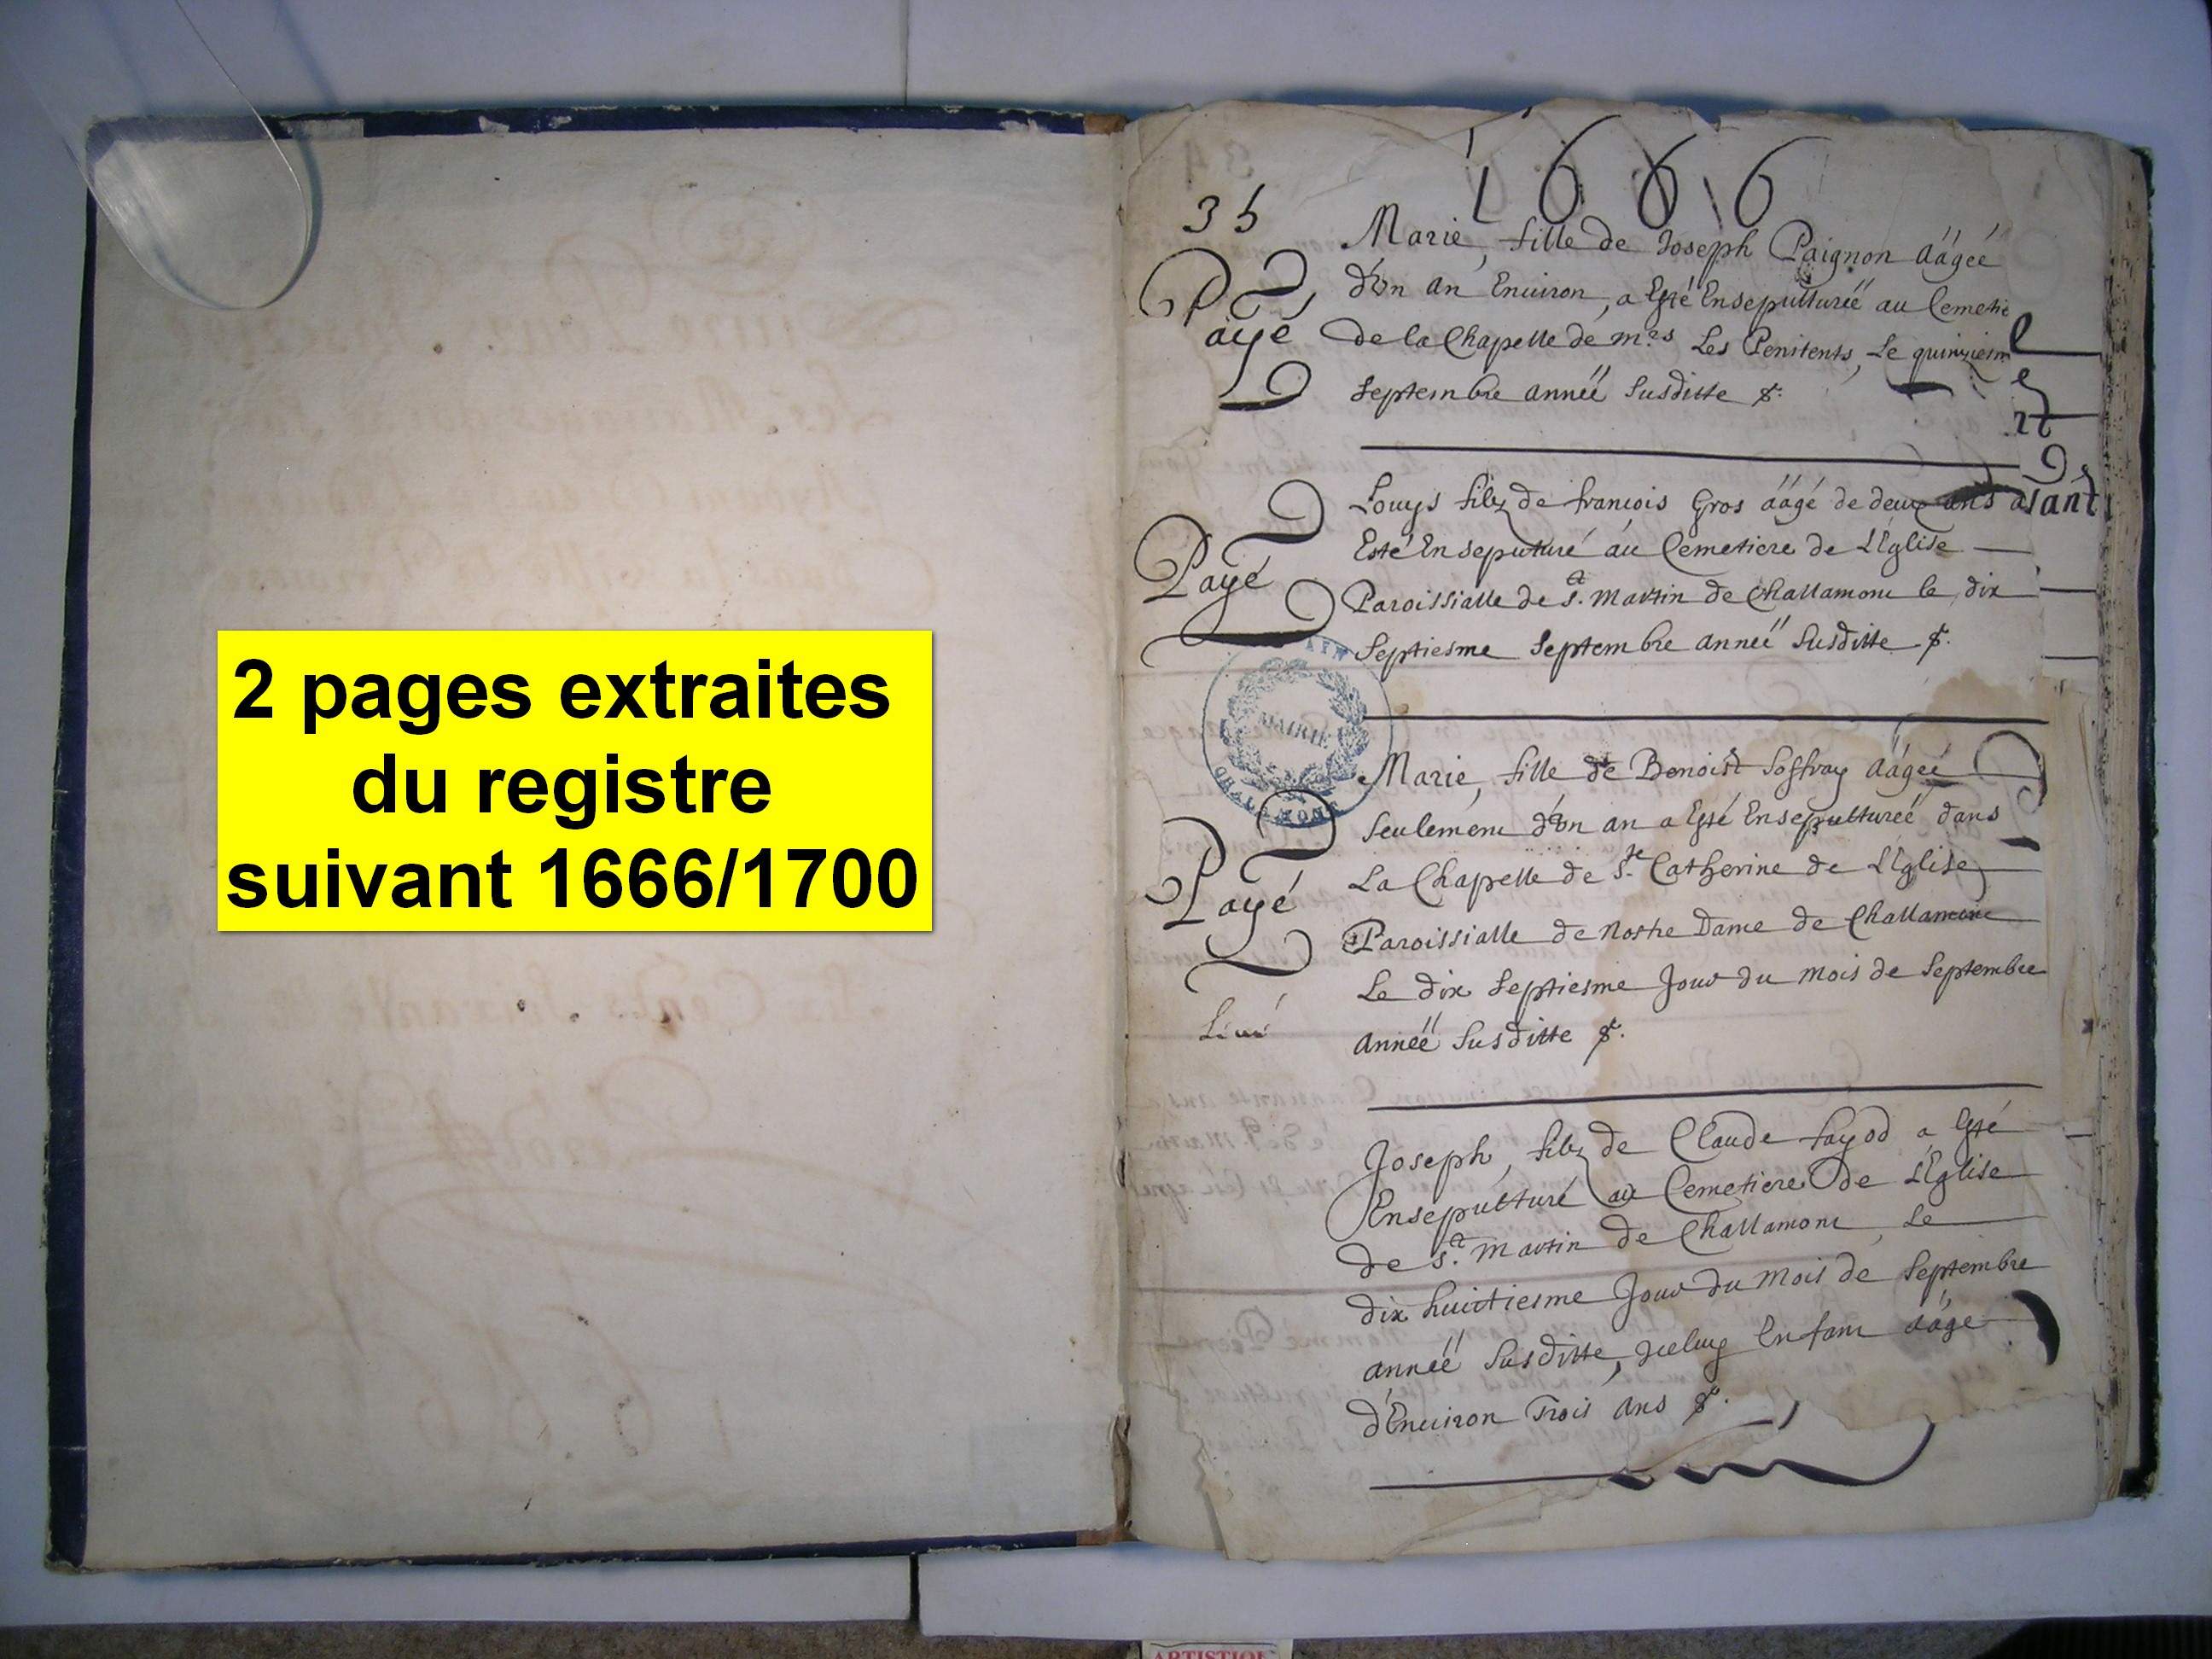 2 pages extraites
du registre
suivant 1666/1700
1666
35
Marie, fille de Joseph Paignon ääģeé
d'vn an Enuiron, a Esté Ensepulturéë au Cemetie
de la Chapelle de mrs Les Penitents, Le quinziesm
Septembre annéë Susditte &.
Payé
Louys filz de francois Gros ääge de deux ans a
Esté Enseputuré au Cemetiere de LEglise
Paroissialle de St. Martin de Challamont le dix
Septiesme Septembre annéë Susditte &.
Payé
MAIRIE
AIN
Marie, fille de Benoist Soffray äägeé
Seulement d'vn an a Esté Ensepulturéë dans
La Chapelle de Ste Catherine de LEglise
Paroissialle de Nostre Dame de Challamont
Le dix Septiesme Jour du mois de Septembre
annéë Susditte &.
Payé
Joseph, filz de Claude fayod a Esté
Ensepulturé au Cemetiere de LEglise
de St. Martin de Challamont, Le
dix huictiesme Jour du Mois de Septembre
annéë Susditte, Iceluy Enfant ääge
d'Enuiron Trois ans &.
ARTISTIQUE